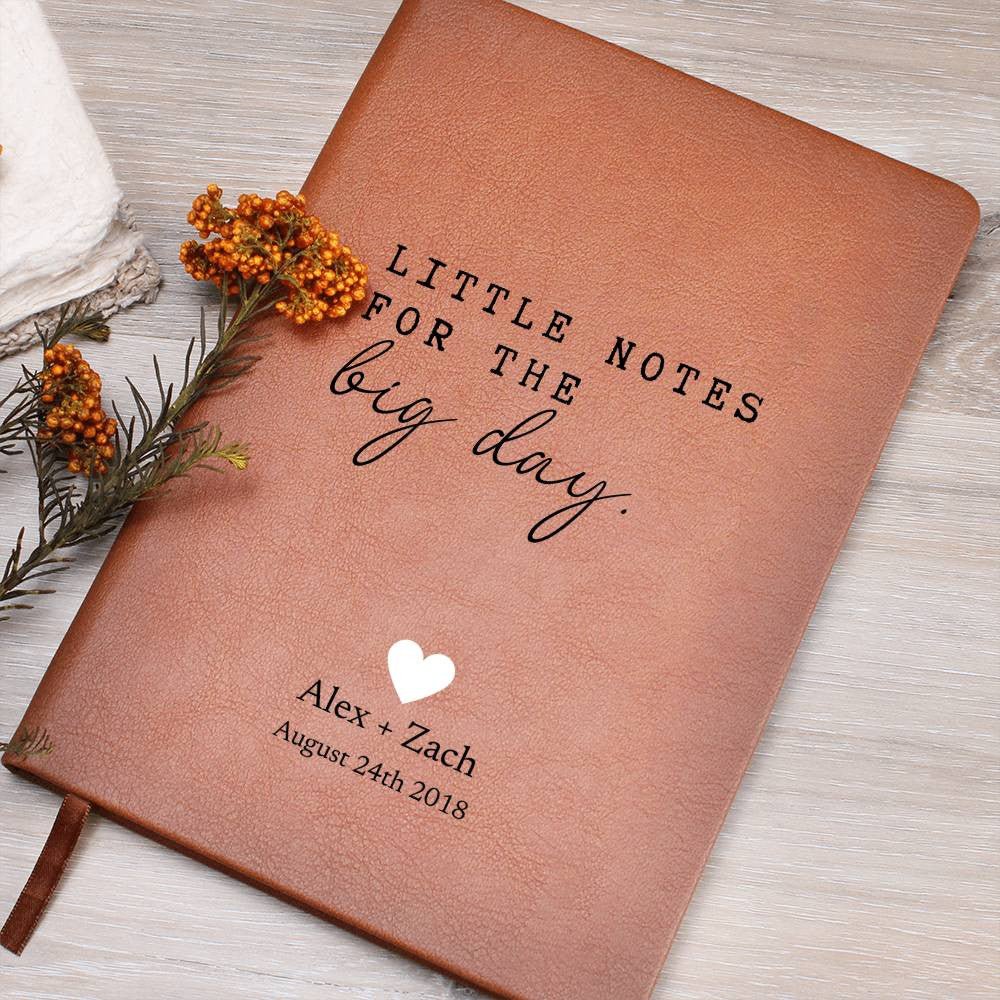 LITTLE NOTES
FOR THE
big day.
Alex + Zach
August 24th 2018